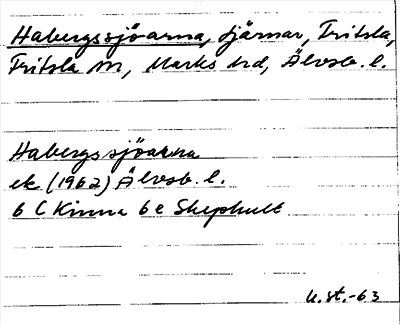 Habergssjöarna, sjärnar, Fritsla,
Fritsla sn, Marks hd, Älvsb. l.
Habergssjöarna
ek (1962) Älvsb. l.
6 C Kinna 6 e Skephult
U.st.-63